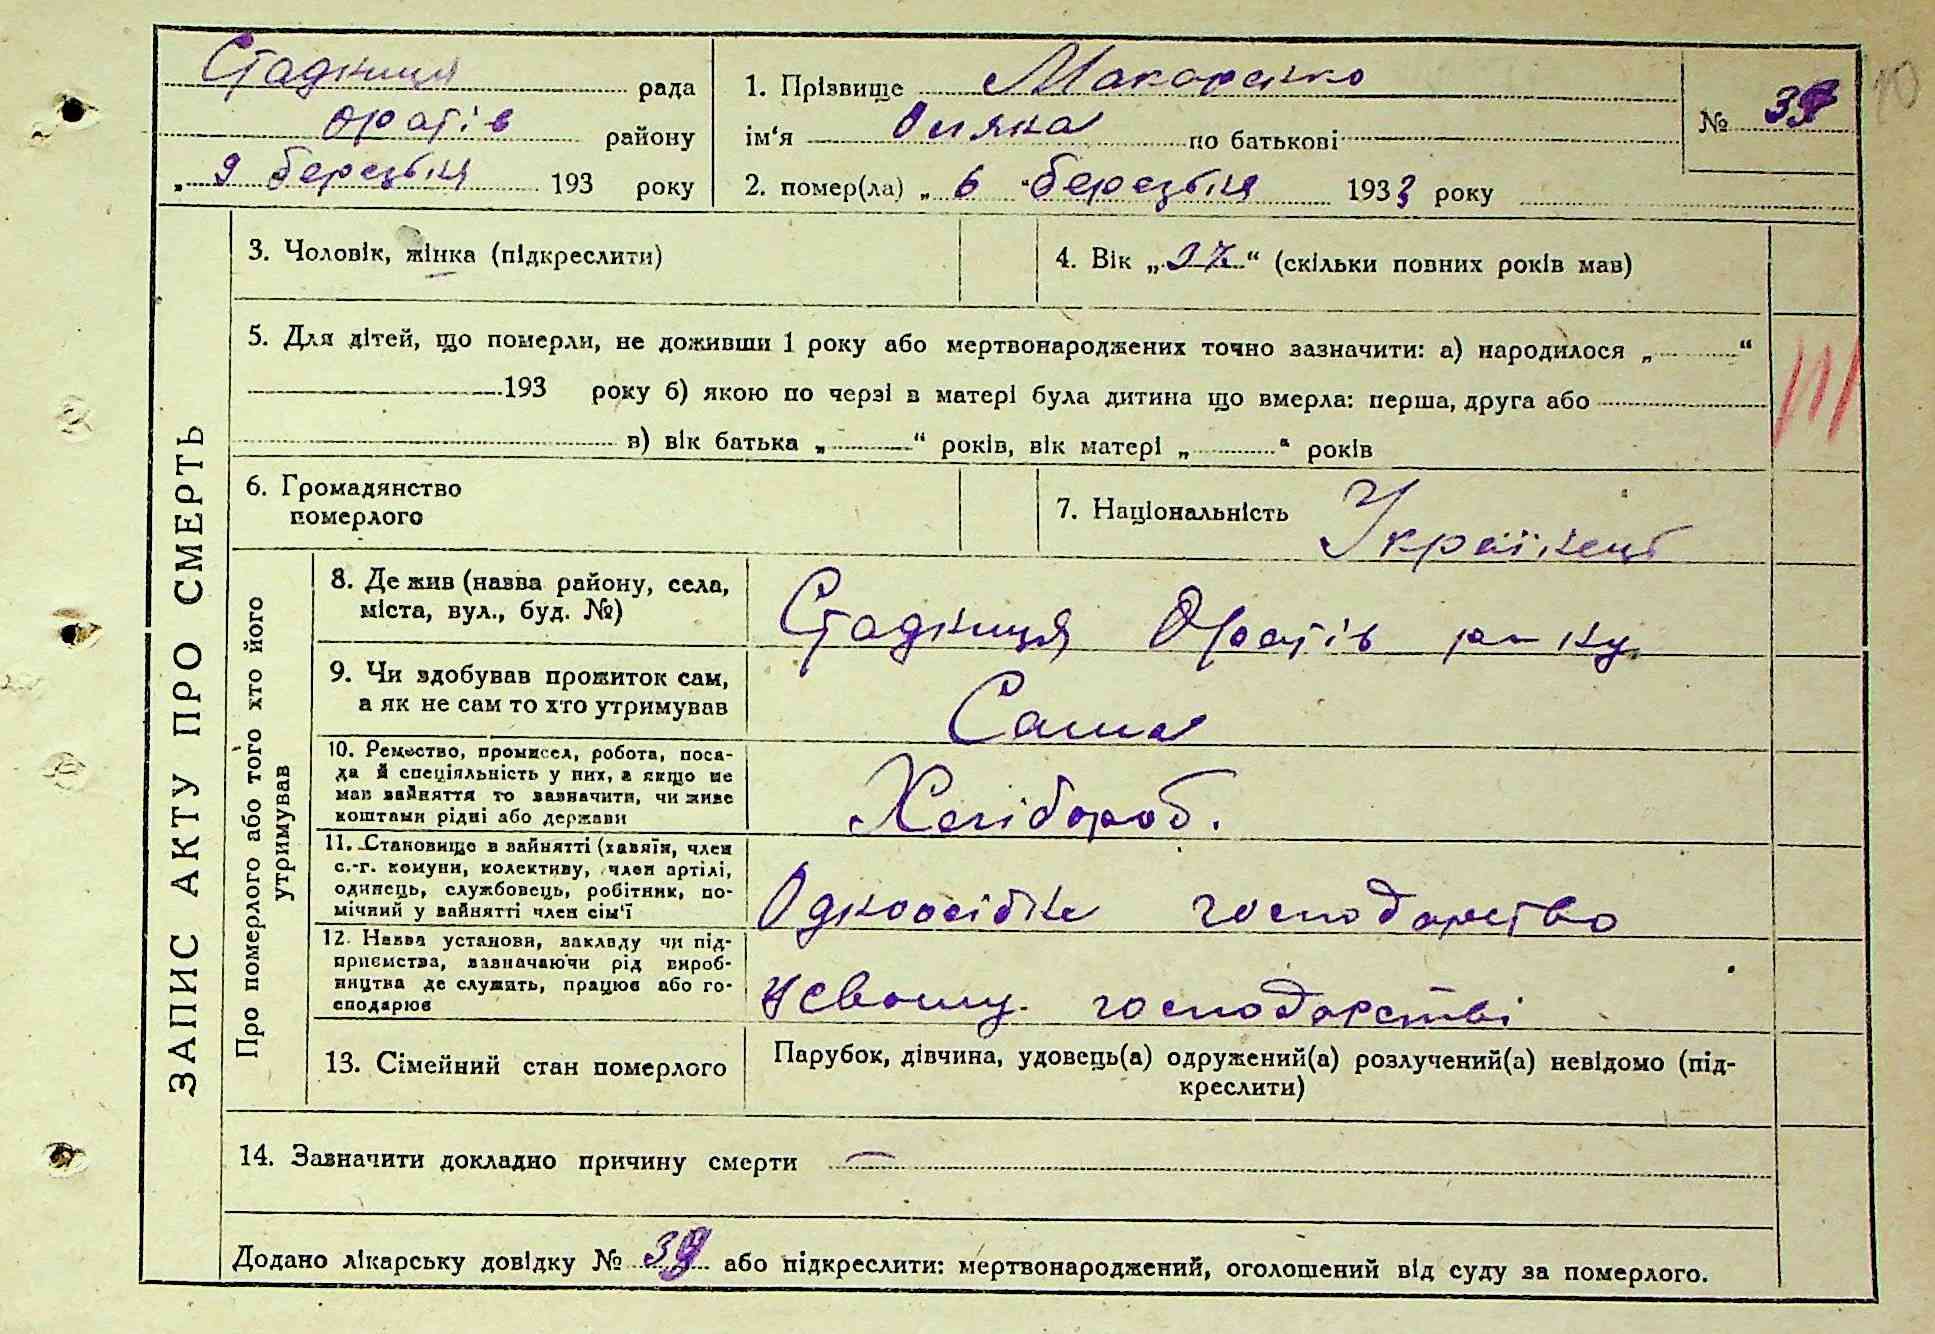 Стадниця рада
Оратів району
„ 9 березня 193 року
1. Прізвище Макаренко
ім‘я по батькові
2. помер(ла) „ 6 “ березня 1933 року
№ 39
10
ЗАПИС АКТУ ПРО СМЕРТЬ
3. Чоловік, жінка (підкреслити)
4. Вік „ 27 “ (скільки повних років мав)
5. Для дітей, що померли, не доживши 1 року або мертвонароджених точно зазначити: а) народилося „ “
193 року б) якою по черзі в матері була дитина що вмерла: перша, друга або
в) вік батька „ “ років, вік матері „ “ років
6. Громадянство
померлого
7. Національність Українець
Про померлого або того хто його
утримував
8. Де жив (назва району, села,
міста, вул., буд. №)
Стадниця Оратів р-ну
9. Чи здобував прожиток сам,
а як не сам то хто утримував
Сама
10. Ремество, промисел, робота, поса-
да й спеціяльність у них, а якщо не
мав вайняття то зазначити, чи живе
коштами рідні або держави
Хлібороб.
11. Становище в вайнятті (хазяїн, член
с.-г. комуни, колективу, член артілі,
одинець, службовець, робітник, по-
мічний у вайнятті член сім‘ї
Одноосібне господарство
12. Назва установи, закладу чи під-
приємства, вазначаючи рід вироб-
ництва де служить, працює або го-
сподарює
у своєму господарстві
13. Сімейний стан померлого
Парубок, дівчина, удовець(а) одружений(а) розлучений(а) невідомо (під-
креслити)
14. Зазначити докладно причину смерти —
Додано лікарську довідку № 39 або підкреслити: мертвонароджений, оголошений від суду за померлого.